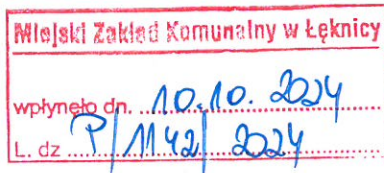 Miejski Zakład Komunalny w Łęknicy
wpłynęło dn. 10.10.2024
L. dz P/1142/2024